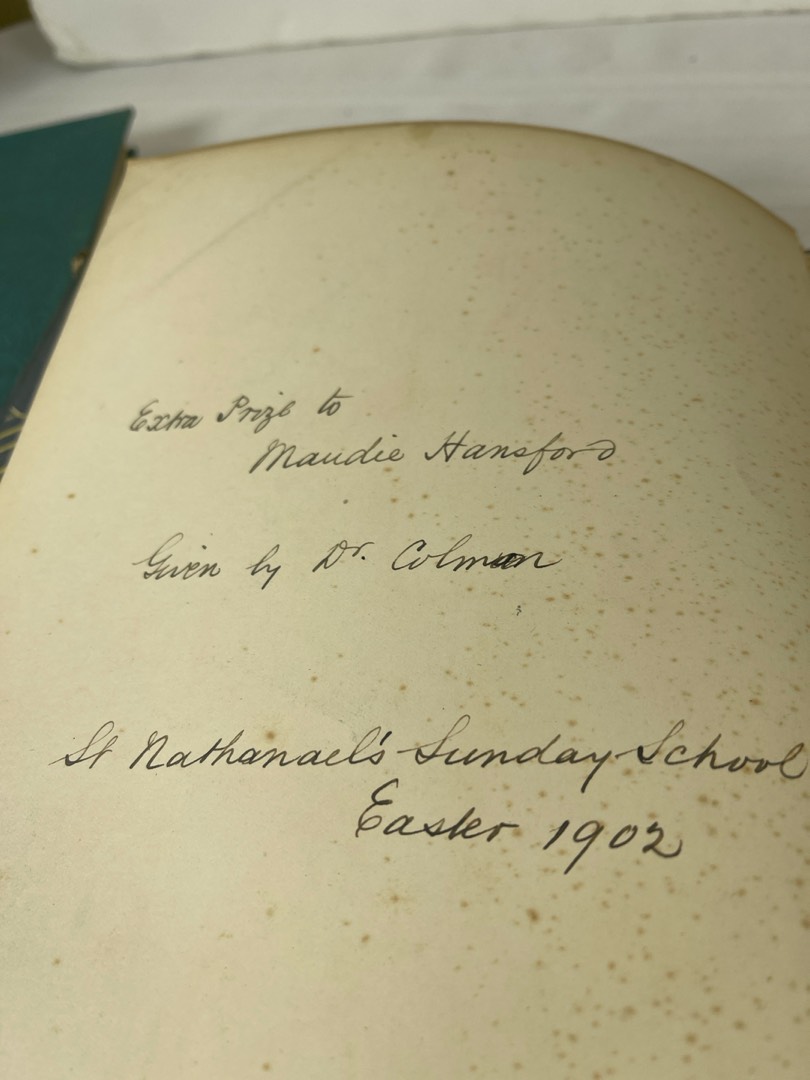 Extra Prize to
Maudie Hansford
Given by Dr. Colman
St Nathanael's Sunday School
Easter 1902